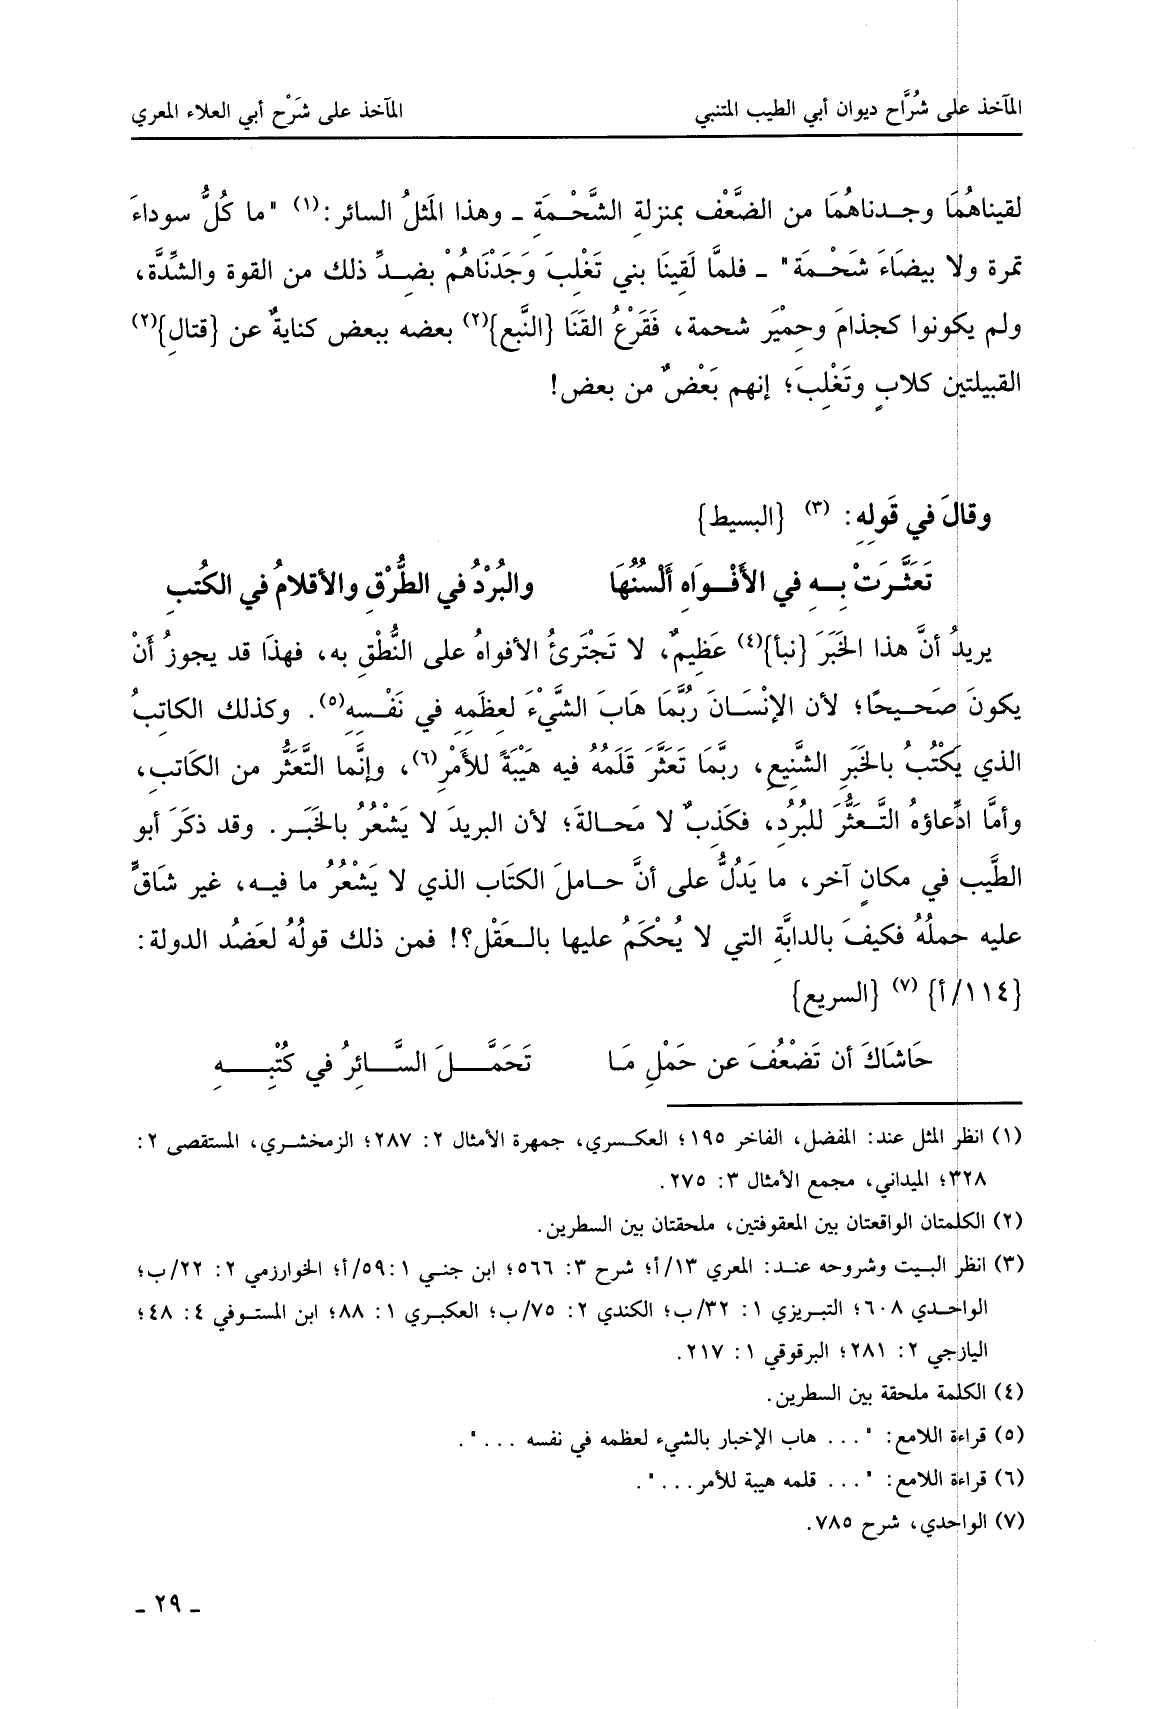 المآخذ على شُرَّاح ديوان أبي الطيب المتنبي المآخذ على شَرْح أبي العلاء المعري
لقيناهُمَا وجدناهُمَا من الضَّعْف بمنزلةِ الشَّحْمَةِ ـ وهذا المَثلُ السائر:(١) "ما كُلُّ سوداءَ
تمرة ولا بيضَاءَ شَحْمَة" ـ فلمَّا لَقِينَا بني تَغْلِبَ وَجَدْنَاهُمْ بضِدِّ ذلك من القوة والشِّدَّة،
ولم يكونوا كجذامَ وحِمْيَر شحمة، فَقَرْعُ القَنَا {النَّبع}(٢) بعضه ببعض كنايةٌ عن {قتالِ}(٢)
القبيلتين كلابٍ وتَغْلِبَ؛ إنهم بَعْضٌ من بعض!
وقالَ في قَولِهِ: (٣) {البسيط}
تَعَثَّرَتْ بِهِ في الأَفْوَاهِ أَلْسُنُهَا والبُرْدُ في الطُّرْقِ والأقلامُ في الكُتبِ
يريدُ أنَّ هذا الخَبَرَ {نبأ}(٤) عَظِيمٌ، لا تَجْتَرئُ الأفواهُ على النُّطْقِ به، فهذَا قد يجوزُ أَنْ
يكونَ صَحِيحًا؛ لأن الإنْسَانَ رُبَّمَا هَابَ الشَّيْءَ لعِظَمِهِ في نَفْسِهِ(٥). وكذلك الكاتبُ
الذي يَكْتُبُ بالخَبَرِ الشَّنِيعِ، ربَّمَا تَعَثَّرَ قَلَمُهُ فيه هَيْبَةً للأمْرِ(٦)، وإنَّما التَّعَثُّر من الكاتب،
وأمَّا ادِّعاؤهُ التَّعَثُّرَ للبُرُدِ، فكَذِبٌ لا مَحالةَ؛ لأن البريدَ لا يَشْعُرُ بالخَبَر. وقد ذكَرَ أبو
الطَّيب في مكانٍ آخر، ما يَدُلُّ على أنَّ حاملَ الكتَاب الذي لا يَشْعُرُ ما فيه، غير شَاقٍّ
عليه حَملُهُ فكيفَ بالدابَّةِ التي لا يُحْكَمُ عليها بالعَقْل؟! فمن ذلك قولُهُ لعَضُد الدولة:
{١١٤/أ} (٧) {السريع}
حَاشَاكَ أن تَضْعُفَ عن حَمْلِ مَا تَحَمَّلَ السَّائِرُ في كُتْبِهِ
(١) انظر المثل عند: المفضل، الفاخر ١٩٥؛ العكسري، جمهرة الأمثال ٢: ٢٨٧؛ الزمخشري، المستقصى ٢:
٣٢٨؛ الميداني، مجمع الأمثال ٣: ٢٧٥.
(٢) الكلمتان الواقعتان بين المعقوفتين، ملحقتان بين السطرين.
(٣) انظر البيت وشروحه عند: المعري ١٣/أ؛ شرح ٣: ٥٦٦؛ ابن جني ١: ٥٩/أ؛ الخوارزمي ٢: ٢٢/ب؛
الواحدي ٦٠٨؛ التبريزي ١: ٣٢/ب؛ الكندي ٢: ٧٥/ب؛ العكبري ١: ٨٨؛ ابن المستوفي ٤: ٤٨؛
اليازجي ٢: ٢٨١؛ البرقوقي ١: ٢١٧.
(٤) الكلمة ملحقة بين السطرين.
(٥) قراءة اللامع: "... هاب الإخبار بالشيء لعظمه في نفسه ...".
(٦) قراءة اللامع: "... قلمه هيبة للأمر...".
(٧) الواحدي، شرح ٧٨٥.
ـ ٢٩ ـ